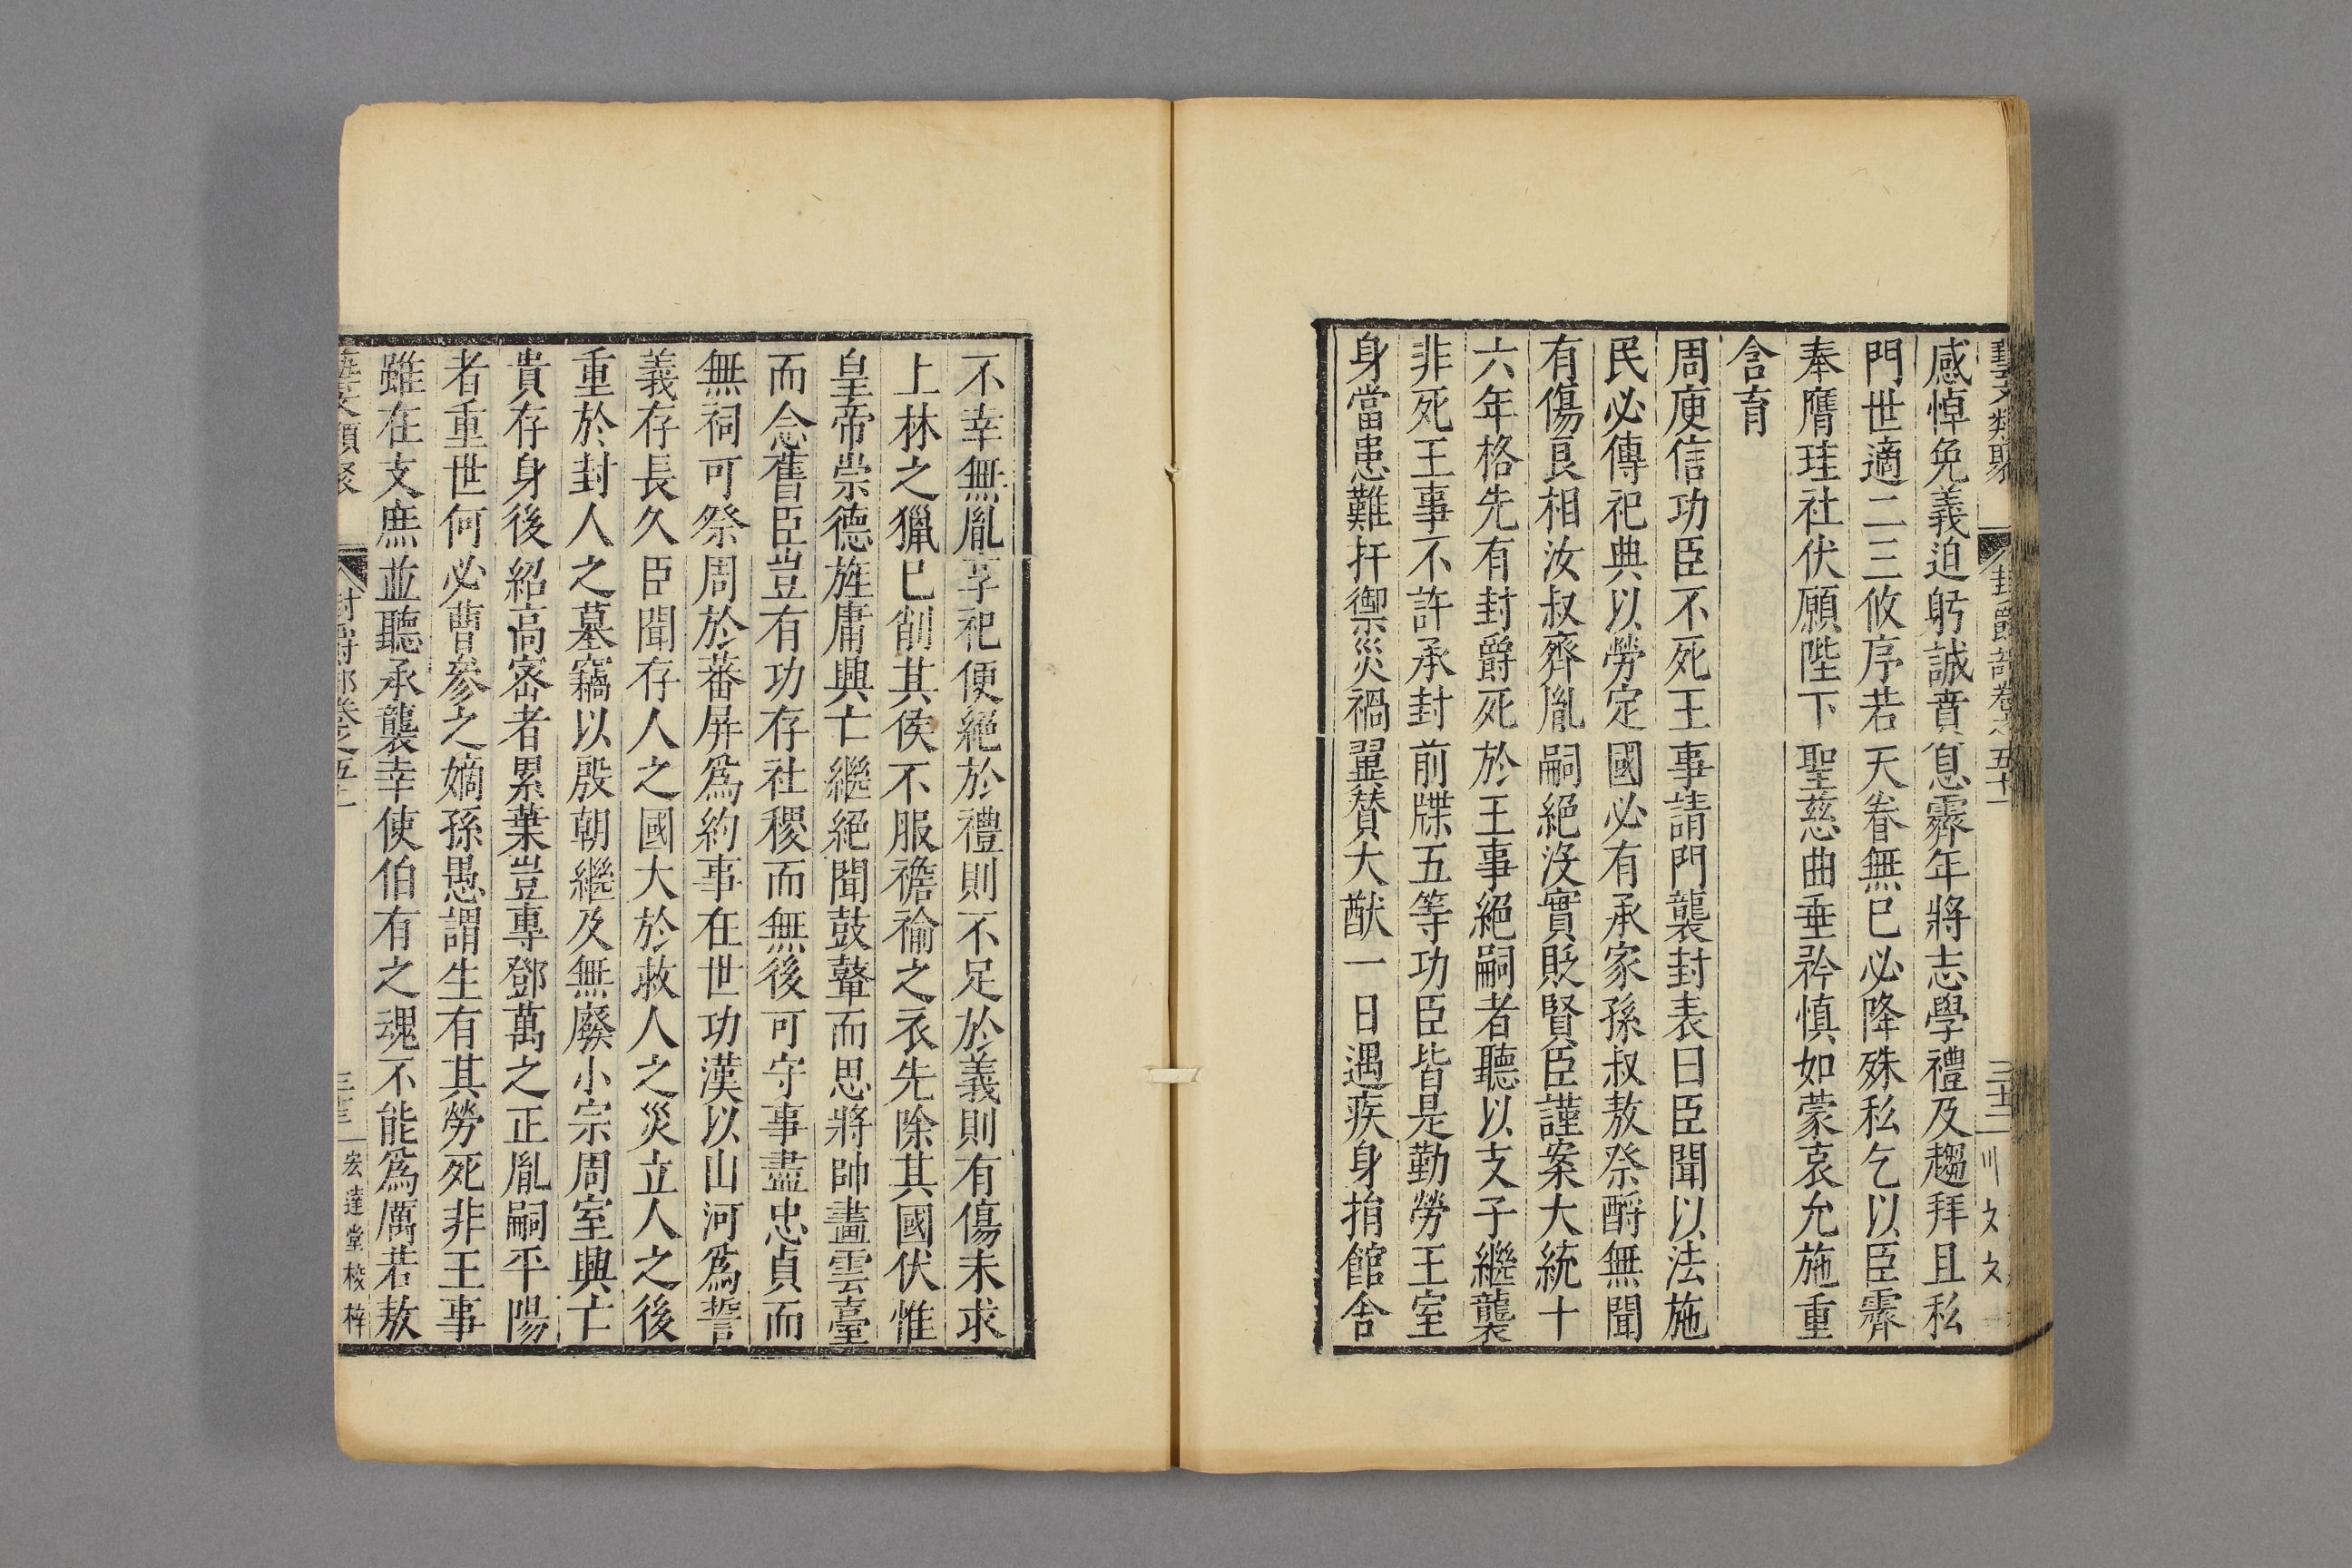 感悼免義迫躬誠賁息霽年將志學禮及趨拜且私
門世適二三攸序若天眷無巳必降殊私乞以臣霽
奉膺珪社伏願陛下聖慈曲垂矜慎如蒙哀允施重
含育
周庾信功臣不死王事請門襲封表曰臣聞以法施
民必傳祀典以勞定國必有承家孫叔敖祭酹無聞
有傷良相汝叔齊胤嗣絕沒實貶賢臣謹案大統十
六年格先有封爵死於王事絕嗣者聽以支子繼襲
非死王事不許承封前牒五等功臣皆是勤勞王室
身當患難扞禦災禍翼贊大猷一日遇疾身捐館舍
不幸無胤享祀便絕於禮則不足於義則有傷未求
上林之獵巳削其侯不服襜褕之衣先除其國伏惟
皇帝崇德旌庸興亡繼絕聞鼓鼙而思將帥畫雲臺
而念舊臣豈有功存社稷而無後可守事盡忠貞而
無祠可祭周於蕃屏爲約事在世功漢以山河爲誓
義存長久臣聞存人之國大於救人之災立人之後
重於封人之墓竊以殷朝繼及無廢小宗周室興亡
貴存身後紹高密者累葉豈專鄧萬之正胤嗣平陽
者重世何必曹參之嫡孫愚謂生有其勞死非王事
雖在支庶並聽承襲幸使伯有之魂不能爲厲若敖
藝文類聚 封爵部卷之五十一 三十三 宏達堂校梓